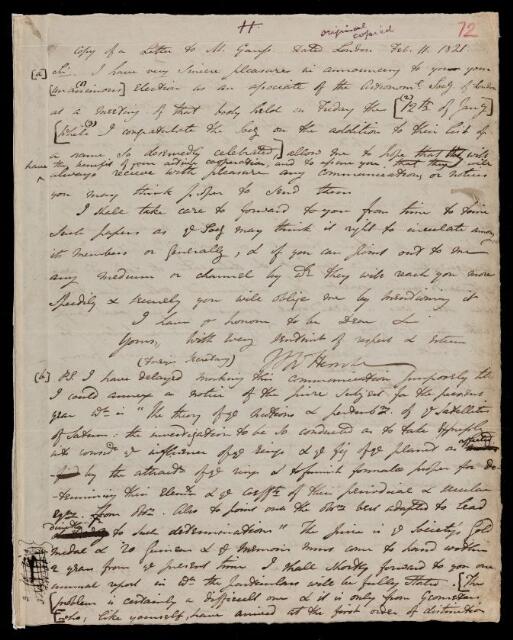 H. original copied 72
Copy of a Letter to M. Gauss Dated London Feb. 11. 1821
[a] Sir. I have very sincere pleasure in announcing to you your
[unanimous] election as an associate of the Astronoml. Socy of London
at a meeting of that body held on Friday the [12th of Jany]
[While I congratulate the Socy on the addition to their list of
a name so deservedly celebrated,] allow me to hope that they will
have the benefit of your active cooperation, and to assure you that they will
always receive with pleasure any communications or notices
you may think proper to send them
I shall take care to forward to you from time to time
such papers as ye Socy may think it right to circulate among
its members or generally, & if you can point out to me
any medium or channel by wh they will reach you more
speedily & securely you will oblige me by mentioning it
I have ye honour to be Dear Sir
Yours, with every sentiment of respect & esteem
(Foreign Secretary) J F W Herschel
(b) P.S. I have delayed making this communication purposely till
I could annex a notice of the prize subject for the present
year wh is "The theory of ye motions & perturbns. of ye Satellites
of Saturn: the investigation to be so conducted as to take expressly
into considn ye influence of ye rings & ye fig of ye planet as affected
by the attractn of ye rings & to furnish formulae proper for de-
termining their elements & ye coeffts of their periodical & secular
eqns. from obsns. Also to point out the obsns best adapted to lead
to such determinations" The prize is ye Society's Gold
medal & 20 Guineas & ye memoirs must come to hand within
2 years from ye present time I shall shortly forward to you our
annual report in wh the particulars will be fully stated. [The
problem is certainly a difficult one & it is only from Geometers
[who, like yourself, have arrived at the first order of distinction